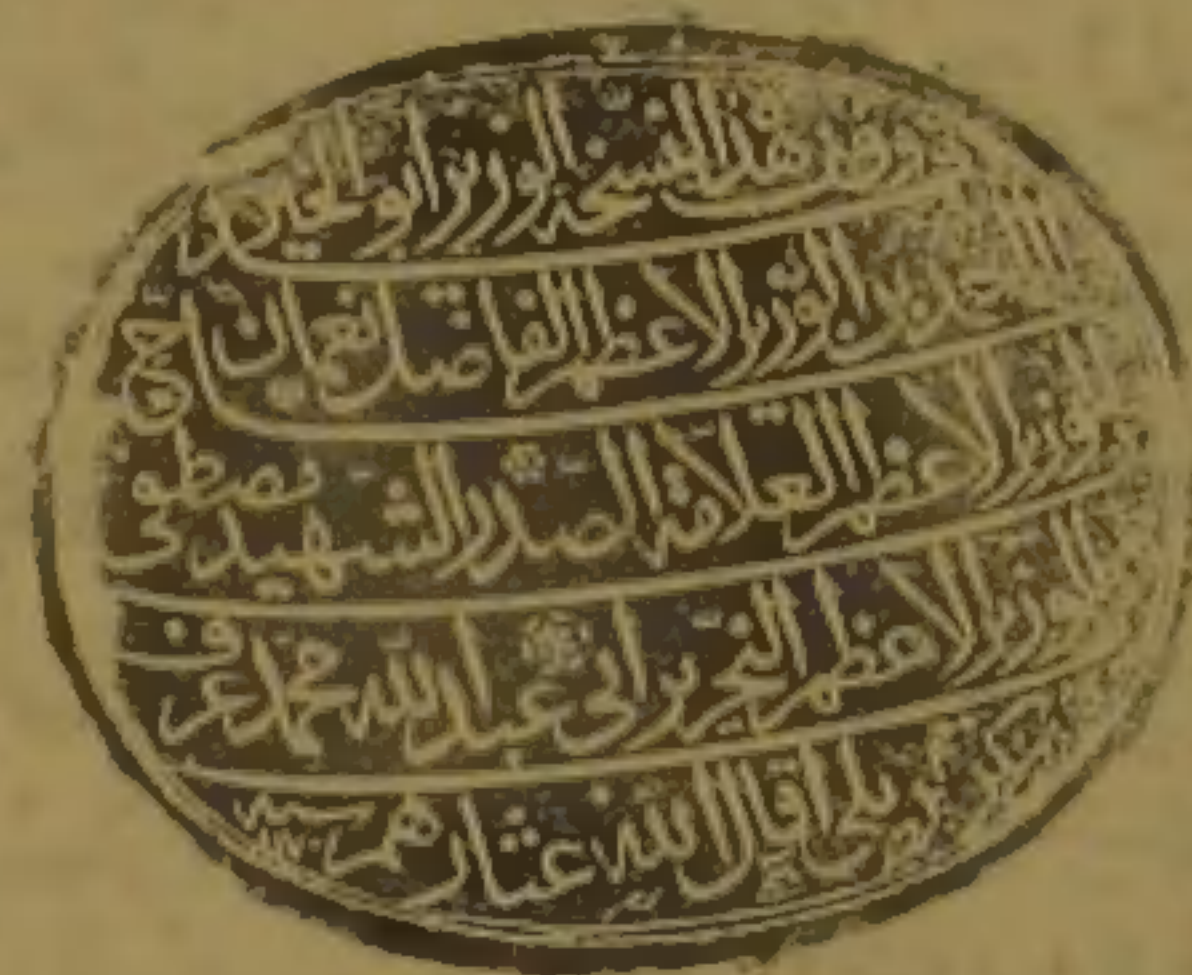 وقف هذا النسخة الوزير ابو الخير
احمد بن الوزير الاعظم الفاضل نعمان
الوزير الاعظم العلامة الصدر الشهيد مصطفى
الوزير الاعظم النحرير ابي عبد الله محمد عرف
بكوپريلى اقال الله عثارهم